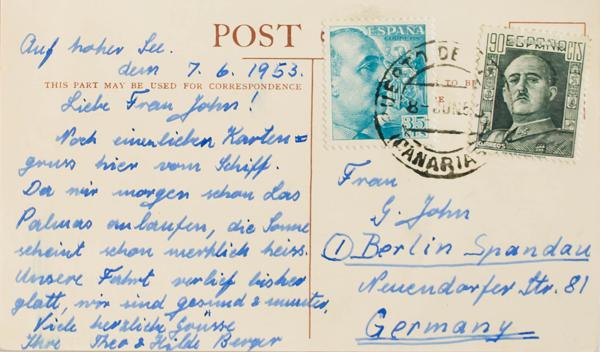 POST
THIS PART MAY BE USED FOR CORRESPONDENCE
Auf hoher See.
dem 7.6.1953.
Liebe Frau John!
Noch einen lieben Karten=
gruss hier vom Schiff.
Da wir morgen schon Las
Palmas anlaufen, die Sonne
scheint schon merklich heiss.
Unsere Fahrt verlief bisher
glatt, wir sind gesund & munter,
Viele herzliche Grüsse
Ihre Theo & Hilde Berger
ESPAÑA
CORREOS
35
90 ESPAÑA CTS
PUERTO DE
8 JUN 5
CANARIA
TO BE
Frau
G. John
① Berlin Spandau
Neuendorfer Str. 81
Germany